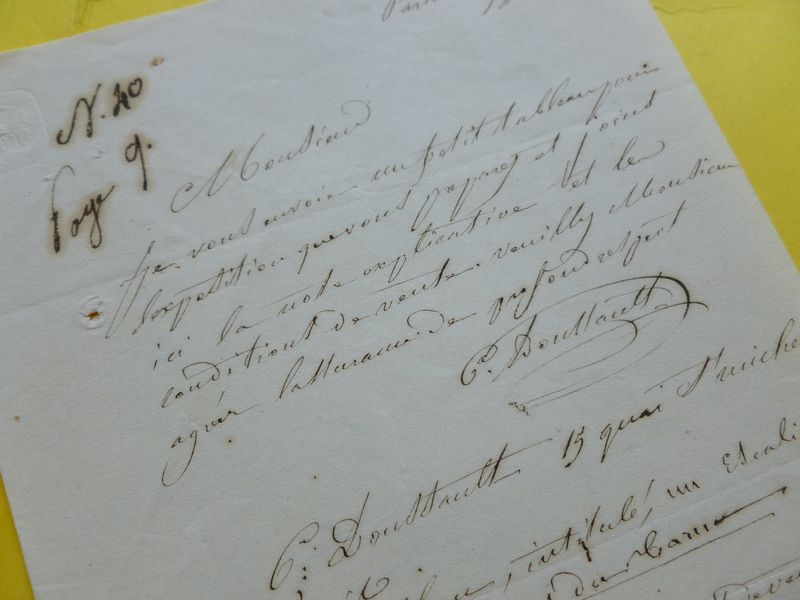 Paris
N. 40
Page 9.
Monsieur
Je vous envoie un petit tableau pour
lexposition que vous preparez et Joins
ici la note explicative et les
conditions de vente. veuilly Monsieur
agréer lassurance de profond respect
C. Doussault
C. Doussault 15 quai St michel
intitulé, un Escali
du Carm